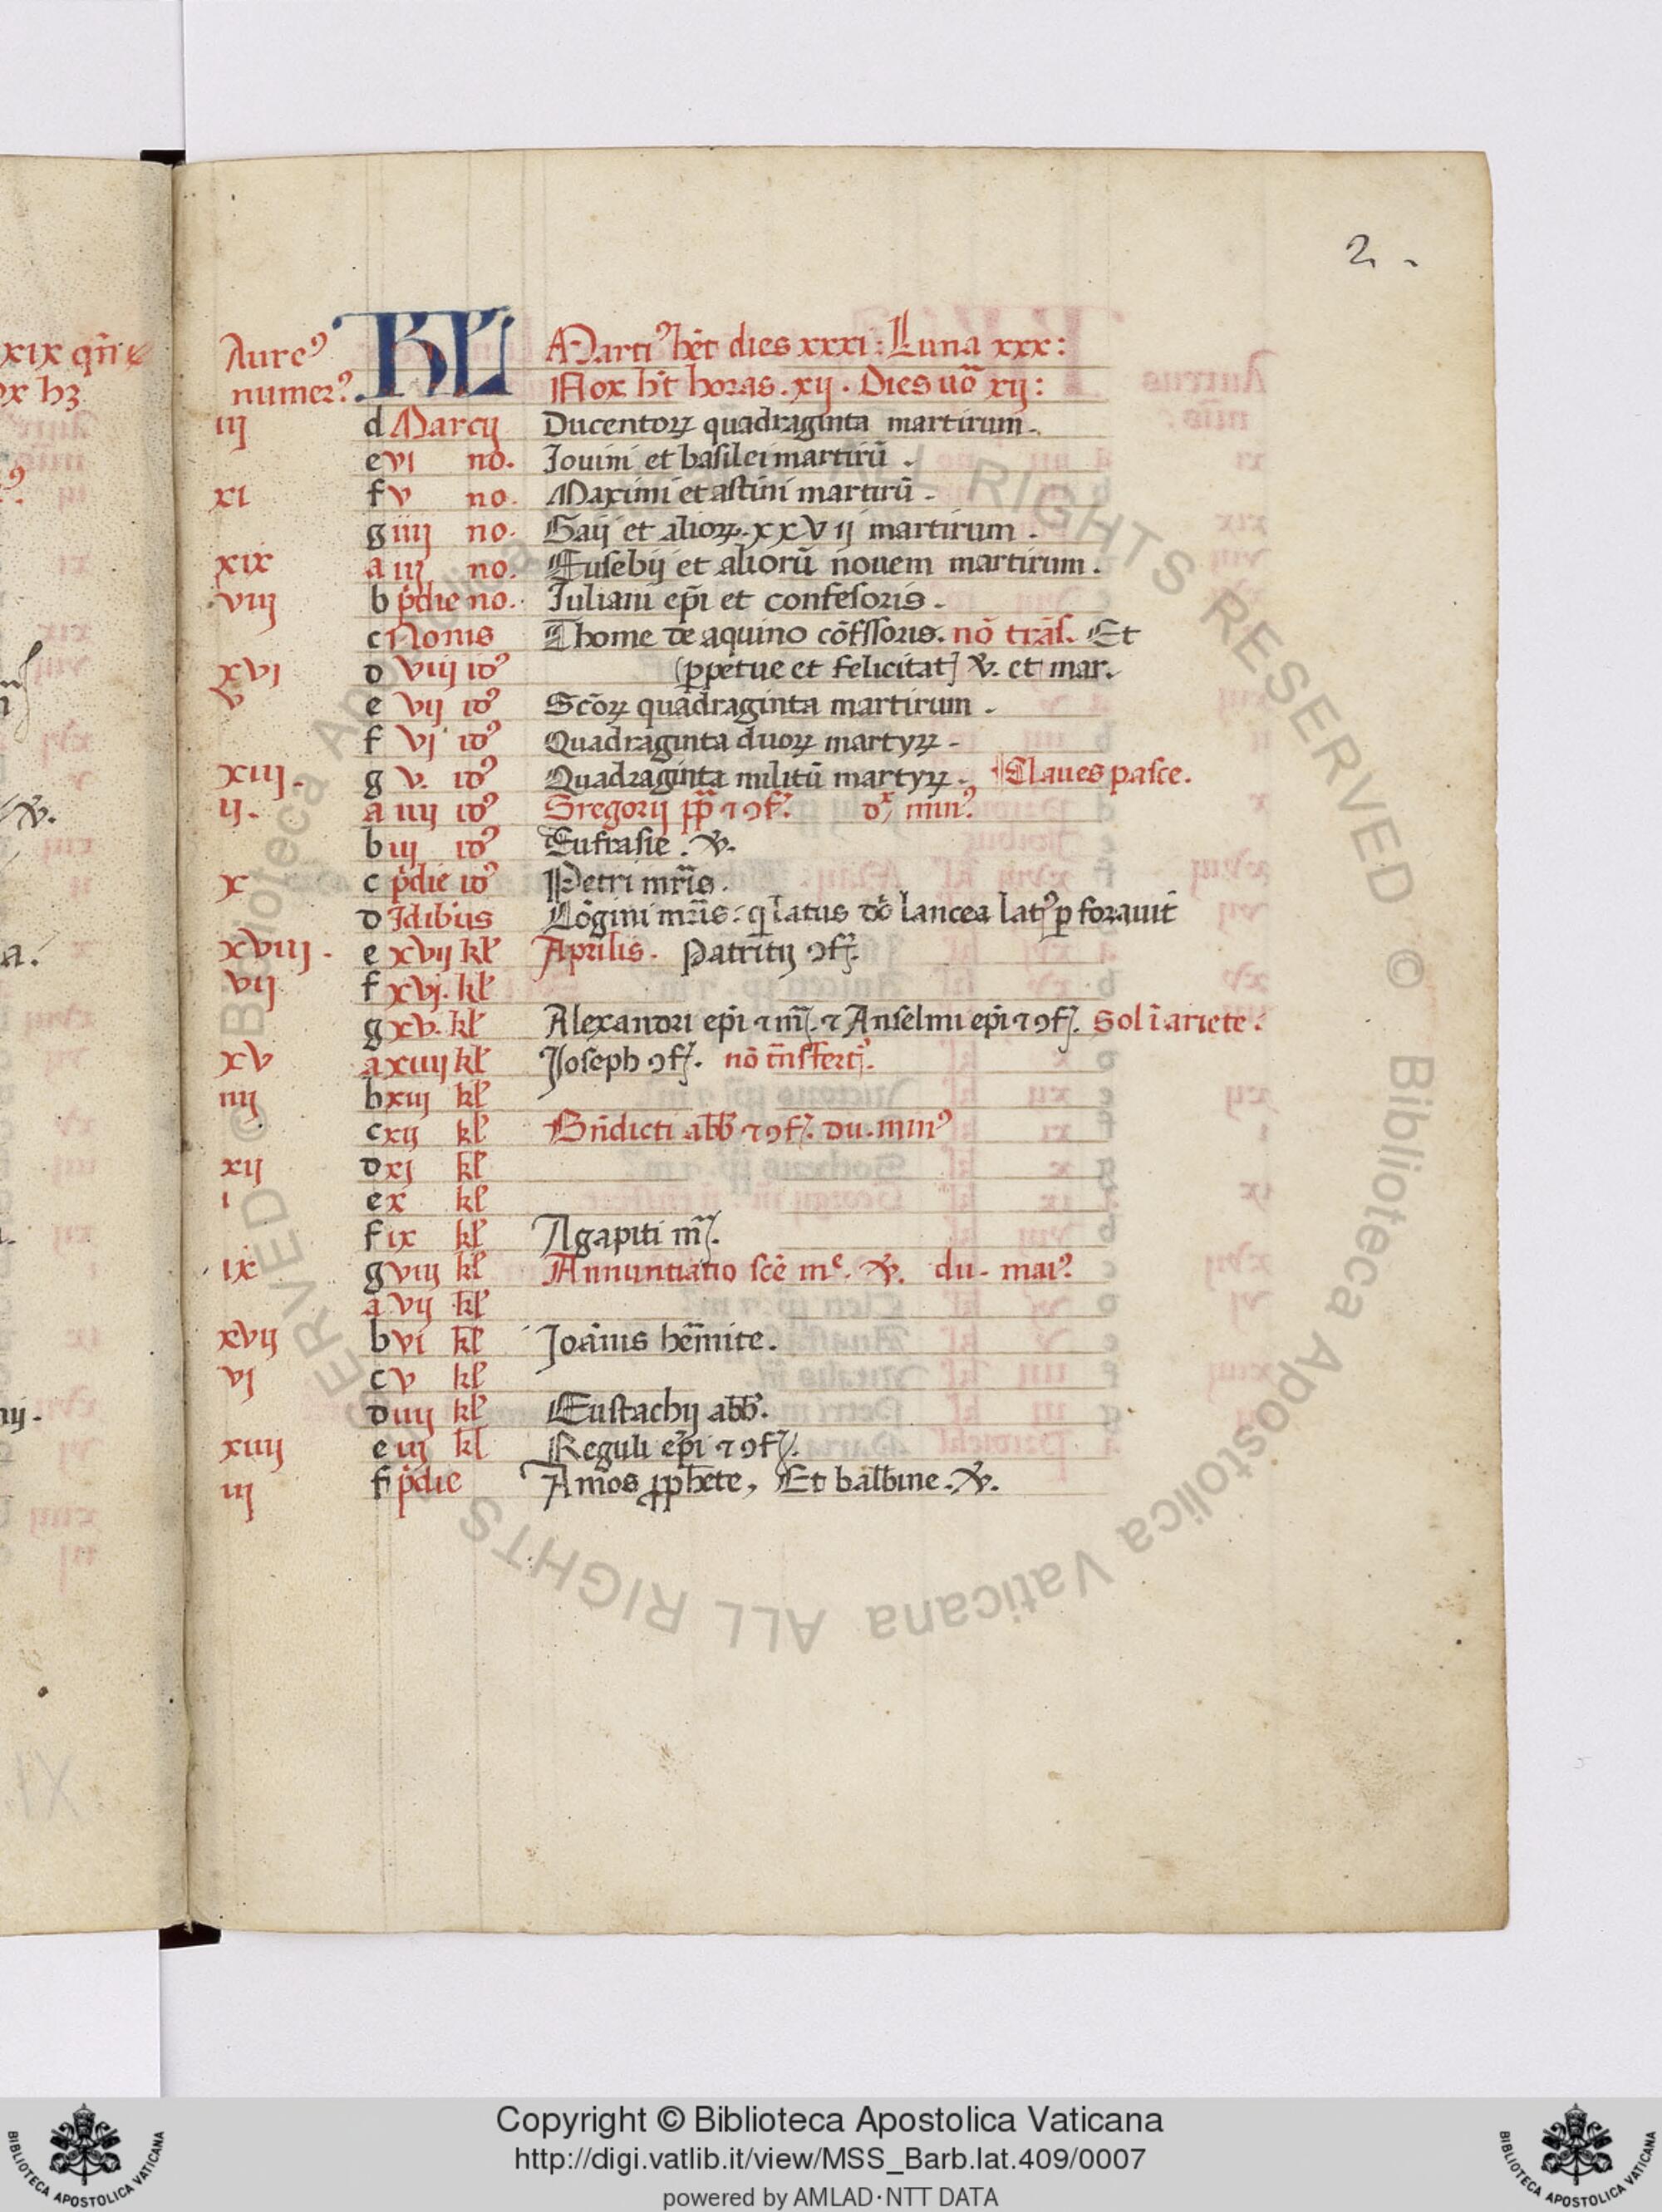 2.
Aureꝰ KL Martiꝰ hēt dies xxxi: Luna xxx:
numerꝰ. Nox h̄t horas. xij. Dies uō xij:
iij d Marcij Ducentoꝝ quadraginta martirum.
e vi no. Iouini et basilei martirū.
xi f v no. Maximi et astini martirū.
g iiij no. Gaij et alioꝝ. xxvij martirum.
xix a iij no. Eusebij et aliorū nouem martirum.
viij b p̄die no. Iuliani ep̄i et confesoris.
c Nonis Thome de aquino cōfssoris. nō trās. Et
xvi d viij idꝰ (ꝑpetue et felicitat] v̄. et mar.
v e vij idꝰ Scōꝝ quadraginta martirum.
f vj idꝰ Quadraginta duoꝝ martyꝝ.
xiij. g v. idꝰ Quadraginta militū martyꝝ. ¶Claues pasce.
ij. a iiij idꝰ Gregorij pp̄ ⁊ ꝯf. dx minꝰ.
b iij idꝰ Eufrasie. v̄.
x c p̄die idꝰ Petri mr̄is.
d Idibus Lōgini mr̄is: q latus dō lancea latꝰ ꝑforauit
xviij. e xvij kl Aprilis. Patritij ꝯf.
vij f xvj. kl
g xv. kl Alexandri ep̄i ⁊ m̄. ⁊ Anselmi ep̄i ⁊ ꝯf. Sol ī ariete.
xv a xiiij kl Joseph ꝯf. nō trn̄sfert.
iiij b xiij kl
c xij kl Bn̄dicti abb̄ ⁊ ꝯf. du. minꝰ
xij d xj kl
i e x kl
f ix kl Agapiti m̄.
ix g viij kl Annuntiatio scē me. v̄. du. maiꝰ.
a vij kl
xvij b vi kl Joānis hēmite.
vj c v kl
d iiij kl Eustachij abb̄.
xiiij e iij kl Reguli ep̄i ⁊ ꝯf.
iij f p̄die Amos ꝓphete, Et balbine. v̄.
Copyright © Biblioteca Apostolica Vaticana
http://digi.vatlib.it/view/MSS_Barb.lat.409/0007
powered by AMLAD·NTT DATA
BIBLIOTECA APOSTOLICA VATICANA
BIBLIOTECA APOSTOLICA VATICANA